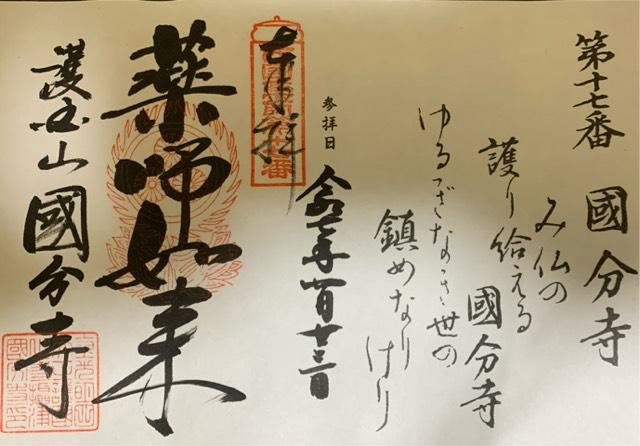 第十七番 國分寺
み仏の
護り給える
國分寺
ゆるぎなき世の
鎮めなりけり
参拝日
奉拝
薬師如来
護国山 國分寺